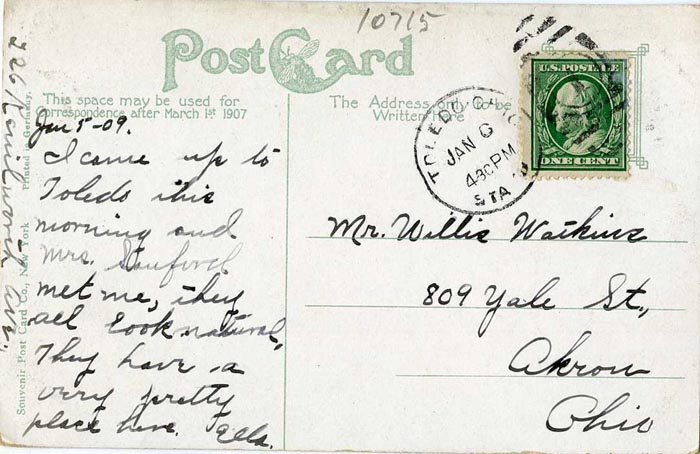 10715
Post Card
This space may be used for
correspondence after March 1st 1907
The Address only to be
Written Here
Jan 5-09.
I came up to
Toledo this
morning and
Mrs. Sanford
met me, they
all look natural,
They have a
very pretty
place here. Ella.
Printed in Germany.
Souvenir Post Card Co., New York
TOLEDO, OHIO
JAN 6
4-30 PM
STA
U.S. POSTAGE
ONE CENT
Mr. Willis Watkins
809 Yale St.,
Akron
Ohio